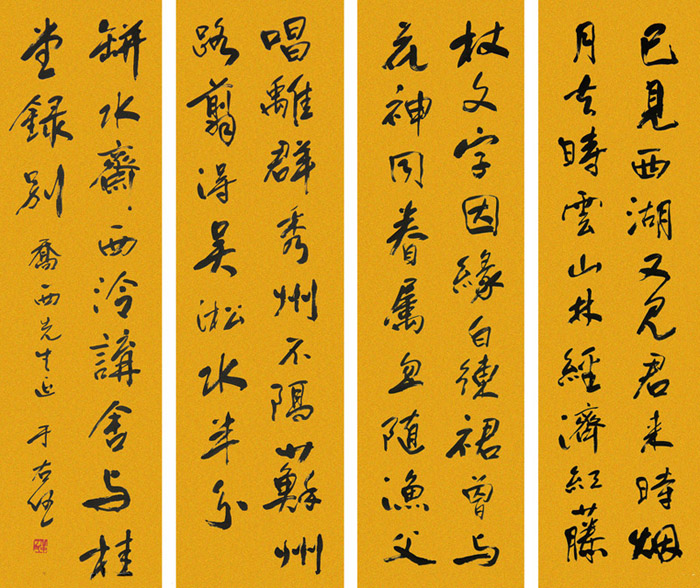 已見西湖又見君来時烟
月去時雲山林經濟紅藤
杖文字因緣白練裙曾与
花神同眷属忽随漁父
唱離群秀州不隔蘇州
路翦得吴淞水半分
缾水齋西泠講舍与桂
堂録別 喬西先生正 于右任